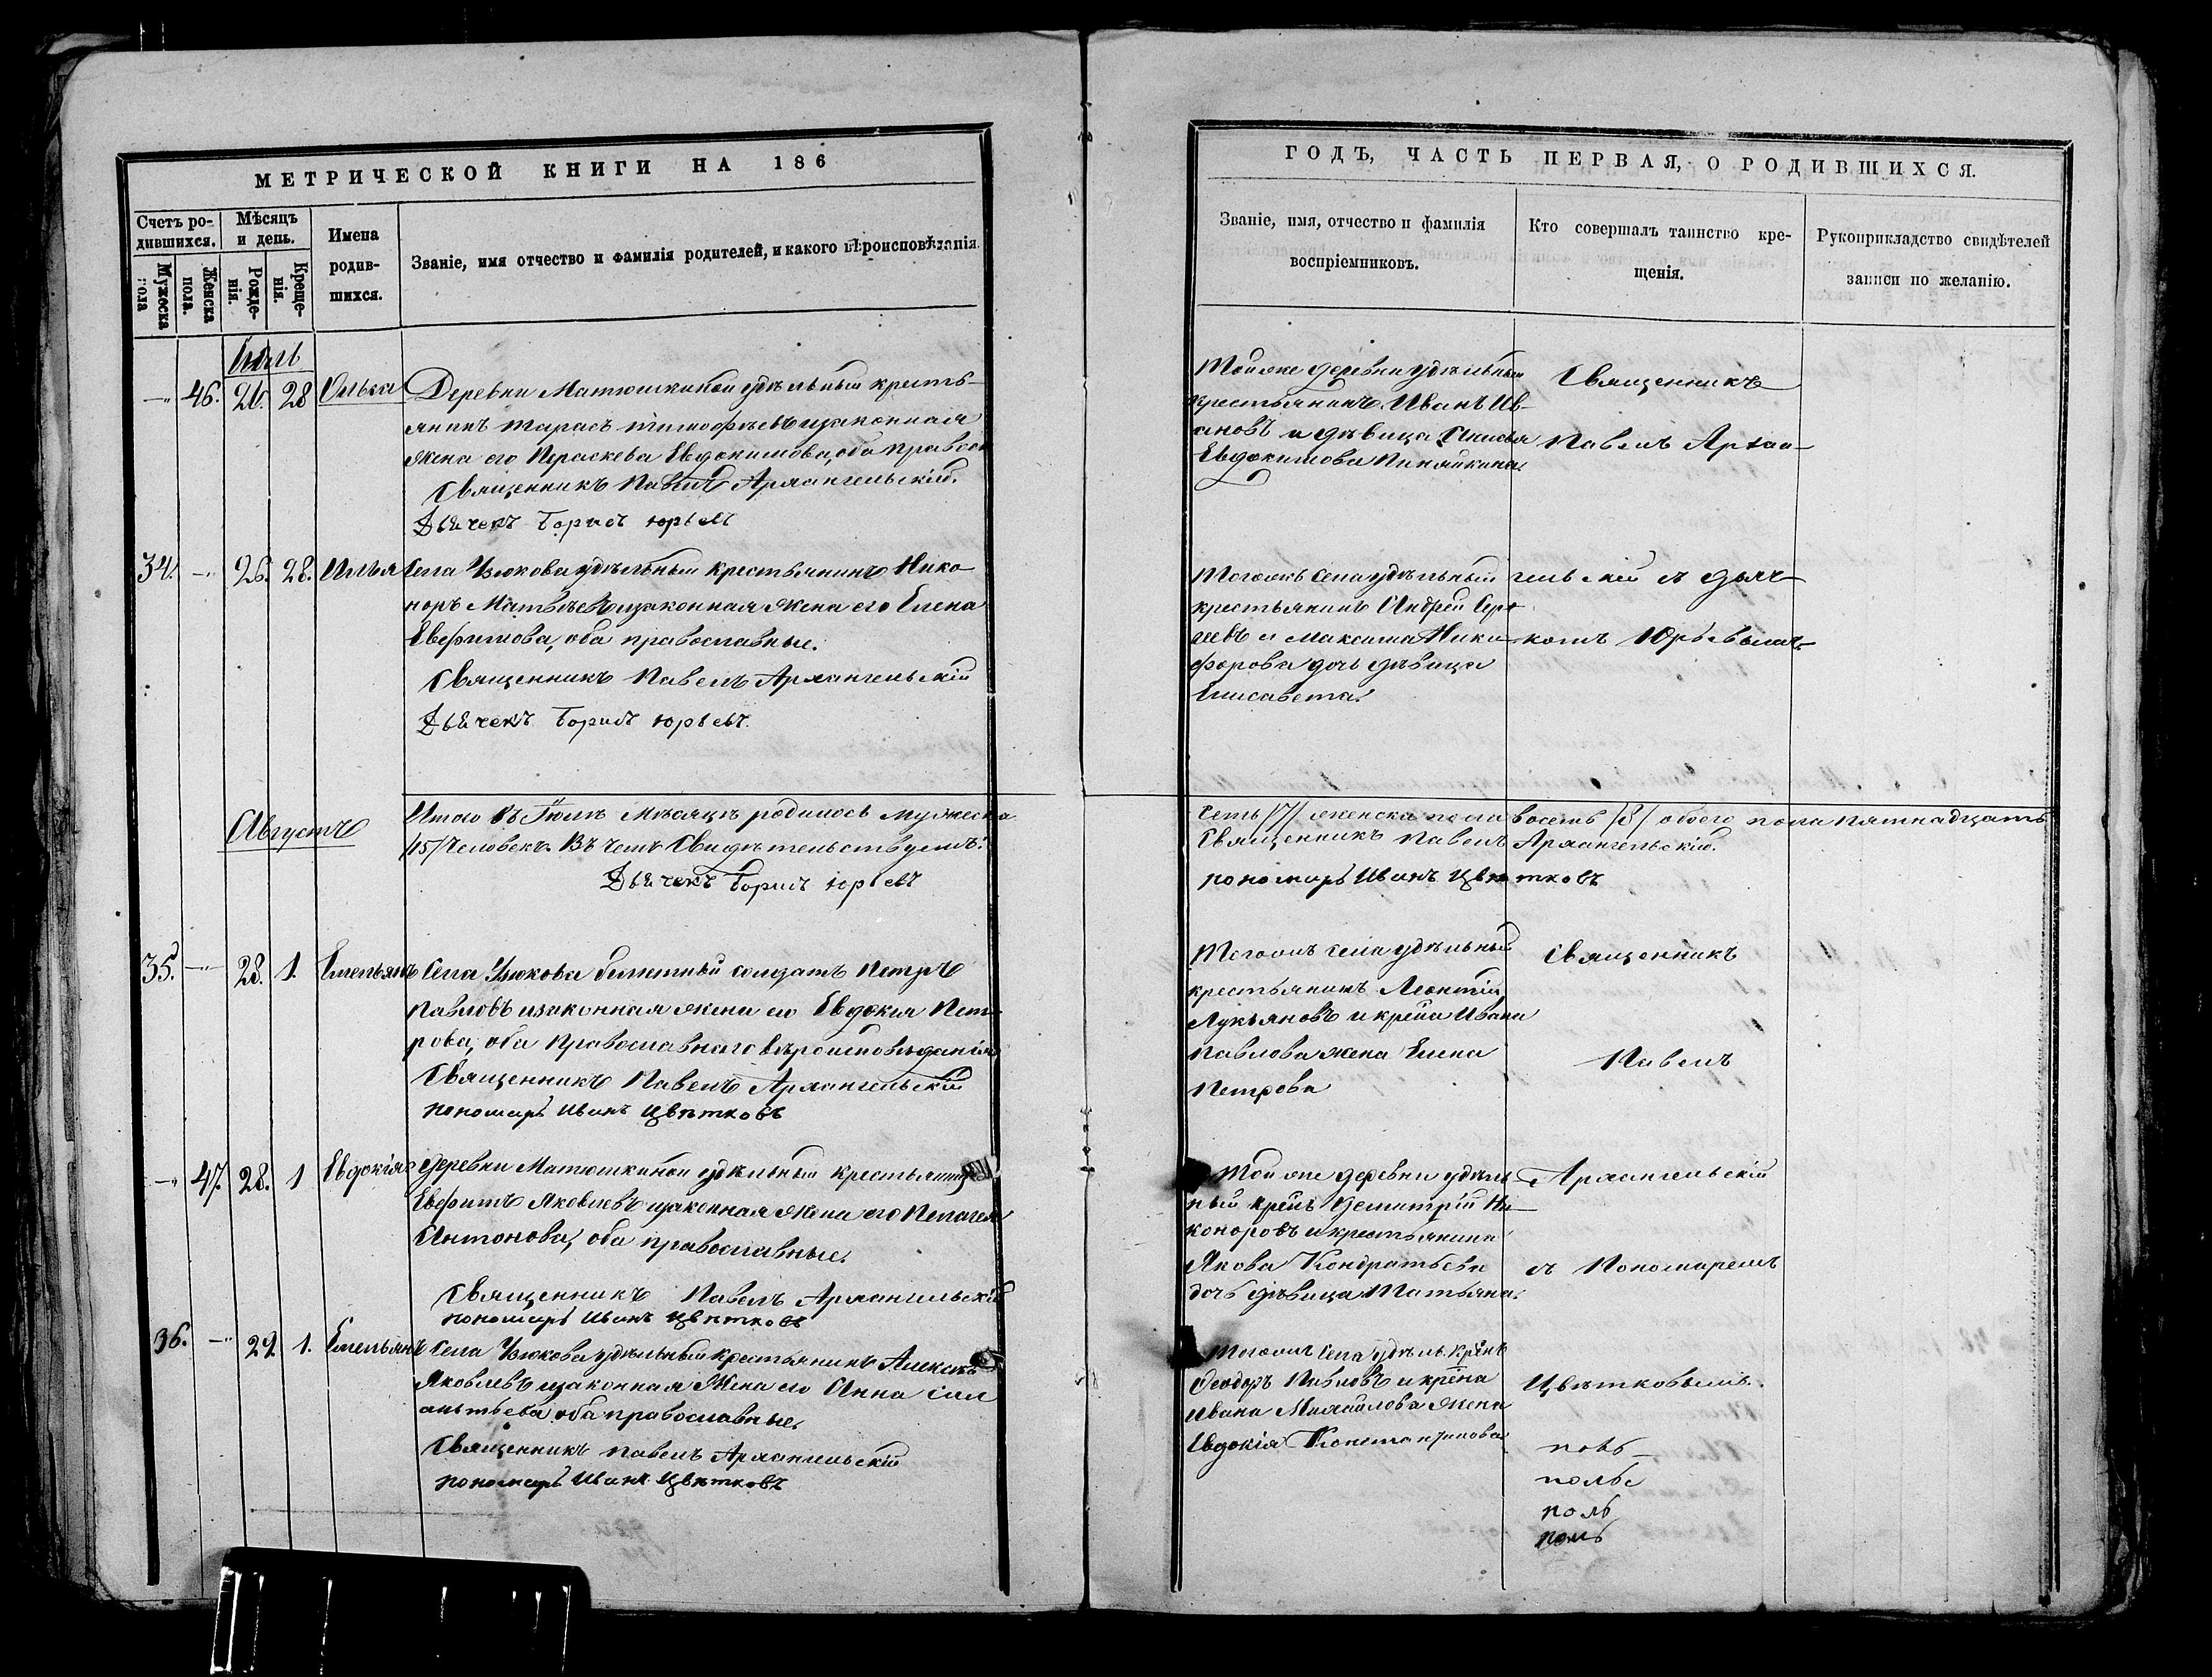 МЕТРИЧЕСКОЙ КНИГИ НА 186
Счетъ ро-
дившихся.
Мѣсяцъ
и день.
Имена
родив-
шихся.
Званіе, имя отчество и фамилія родителей, и какого вѣроисповѣданія.
Мужеска
пола
Женска
пола.
Рожде-
нія.
Креще-
нія.
Июль
46. 26. 28 Ольга Деревни Матюшкиной удѣльный кресть-
янинъ Тарасъ Тимофѣевъ и законная
жена его Параскева Евдокимова, оба правосл
Священникъ Павелъ Архангельскій.
Дьячекъ Борисъ Юрьевъ
34. 26. 28. Илья Села Узюкова удѣльный крестьянинъ Нико-
норъ Матвѣевъ и законная жена его Елена
Евфимова, оба православные.
Священникъ Павелъ Архангельскій
Дьячекъ Борисъ Юрьевъ.
Августъ
Итого въ Іюлѣ мѣсяцѣ родилось мужеска
/15/ человекъ. Въ чемъ свидѣтельствуемъ:
Дьячекъ Борисъ Юрьевъ
35. 28. 1. Емельянъ Села Узюкова билетный солдатъ Петръ
Павловъ и законная жена его Евдокія Пет-
рова, оба православнаго вѣроисповѣданія
Священникъ Павелъ Архангельскій
пономарь Иванъ Цвѣтковъ
47. 28. 1 Евдокія Деревни Матюшкиной удѣльный крестьянинъ
Евфимъ Яковлевъ и законная жена его Пелагея
Антонова, оба православные.
Священникъ Павелъ Архангельскій
пономарь Иванъ Цвѣтковъ
36. 29. 1. Емельянъ Села Узюкова удѣльный крестьянинъ
Яковлевъ и законная жена его Анна
оба православные.
Священникъ Павелъ Архангельскій
пономарь Иванъ Цвѣтковъ
ГОДЪ, ЧАСТЬ ПЕРВАЯ, О РОДИВШИХСЯ.
Званіе, имя, отчество и фамилія
воспріемниковъ.
Кто совершалъ таинство кре-
щенія.
Рукоприкладство свидѣтелей
записи по желанію.
Той же деревни удѣльный
крестьянинъ Иванъ Ив-
ановъ и дѣвица
Евдокимова
Священникъ
Павелъ Архан-
Тогоже села удѣльный
крестьянинъ Андрей Сер-
геевъ и Максима Ники-
форова дочь дѣвица
Елисавета.
гельскій съ дьяч-
комъ Юрьевымъ
семь /7/ женска пола восемь /8/ обоего пола пятнадцать
Священникъ Павелъ Архангельскій.
пономарь Иванъ Цвѣтковъ
Тогожъ села удѣльный
крестьянинъ Леонтій
Лукьяновъ и Ивана
Павлова жена Елена
Петрова
Священникъ
Павелъ
Той же деревни удѣль-
ный Димитрій Ни-
коноровъ и крестьянина
Якова Кондратьева
дочь дѣвица Татьяна.
Архангельскій
съ Пономаремъ
Тогожъ села удѣль.
Ѳеодоръ Павловъ и
Ивана Михайлова жена
Евдокія Константинова
Цвѣтковымъ.